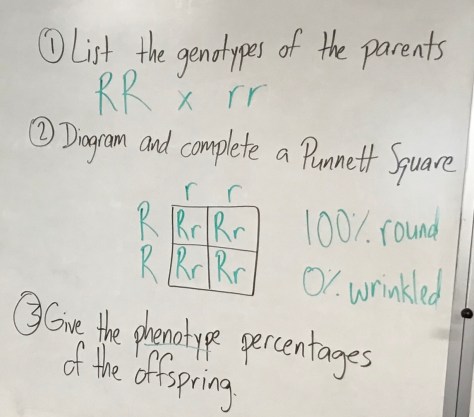 ① List the genotypes of the parents
RR x rr
② Diagram and complete a Punnett Square
r r
R Rr Rr 100% round
R Rr Rr 0% wrinkled
③ Give the phenotype percentages
of the offspring.